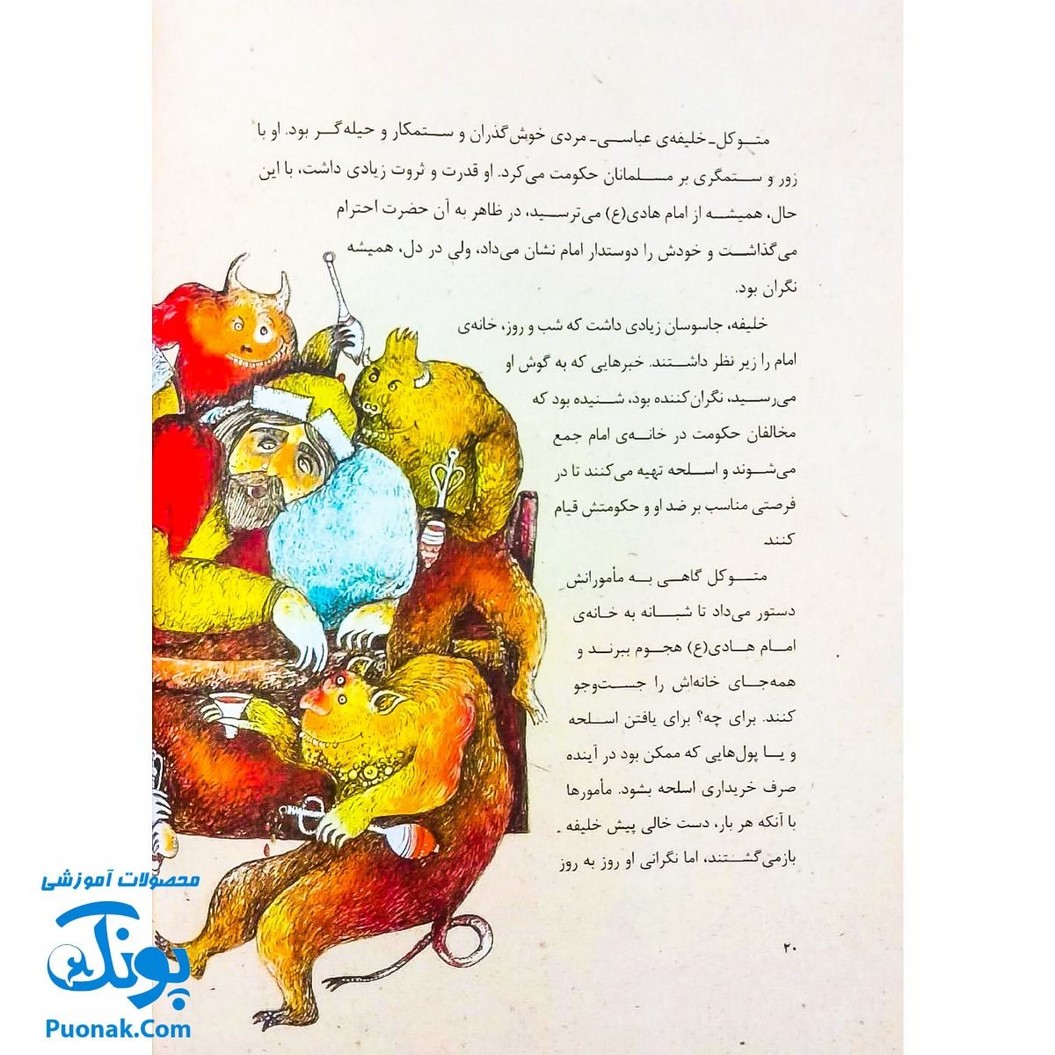 متوکل- خلیفه‌ی عباسی- مردی خوش‌گذران و ستمکار و حیله‌گر بود. او با
زور و ستمگری بر مسلمانان حکومت می‌کرد. او قدرت و ثروت زیادی داشت، با این
حال، همیشه از امام هادی(ع) می‌ترسید، در ظاهر به آن حضرت احترام
می‌گذاشت و خودش را دوستدار امام نشان می‌داد، ولی در دل، همیشه
نگران بود.
خلیفه، جاسوسان زیادی داشت که شب و روز، خانه‌ی
امام را زیر نظر داشتند. خبرهایی که به گوش او
می‌رسید، نگران‌کننده بود، شنیده بود که
مخالفان حکومت در خانه‌ی امام جمع
می‌شوند و اسلحه تهیه می‌کنند تا در
فرصتی مناسب بر ضد او و حکومتش قیام
کنند.
متوکل گاهی به مأمورانش
دستور می‌داد تا شبانه به خانه‌ی
امام هادی(ع) هجوم ببرند و
همه‌جای خانه‌اش را جست‌وجو
کنند. برای چه؟ برای یافتن اسلحه
و یا پول‌هایی که ممکن بود در آینده
صرف خریداری اسلحه بشود. مأمورها
با آنکه هر بار، دست خالی پیش خلیفه
بازمی‌گشتند، اما نگرانی او روز به روز
۲۰
محصولات آموزشی
پونک
Puonak.Com